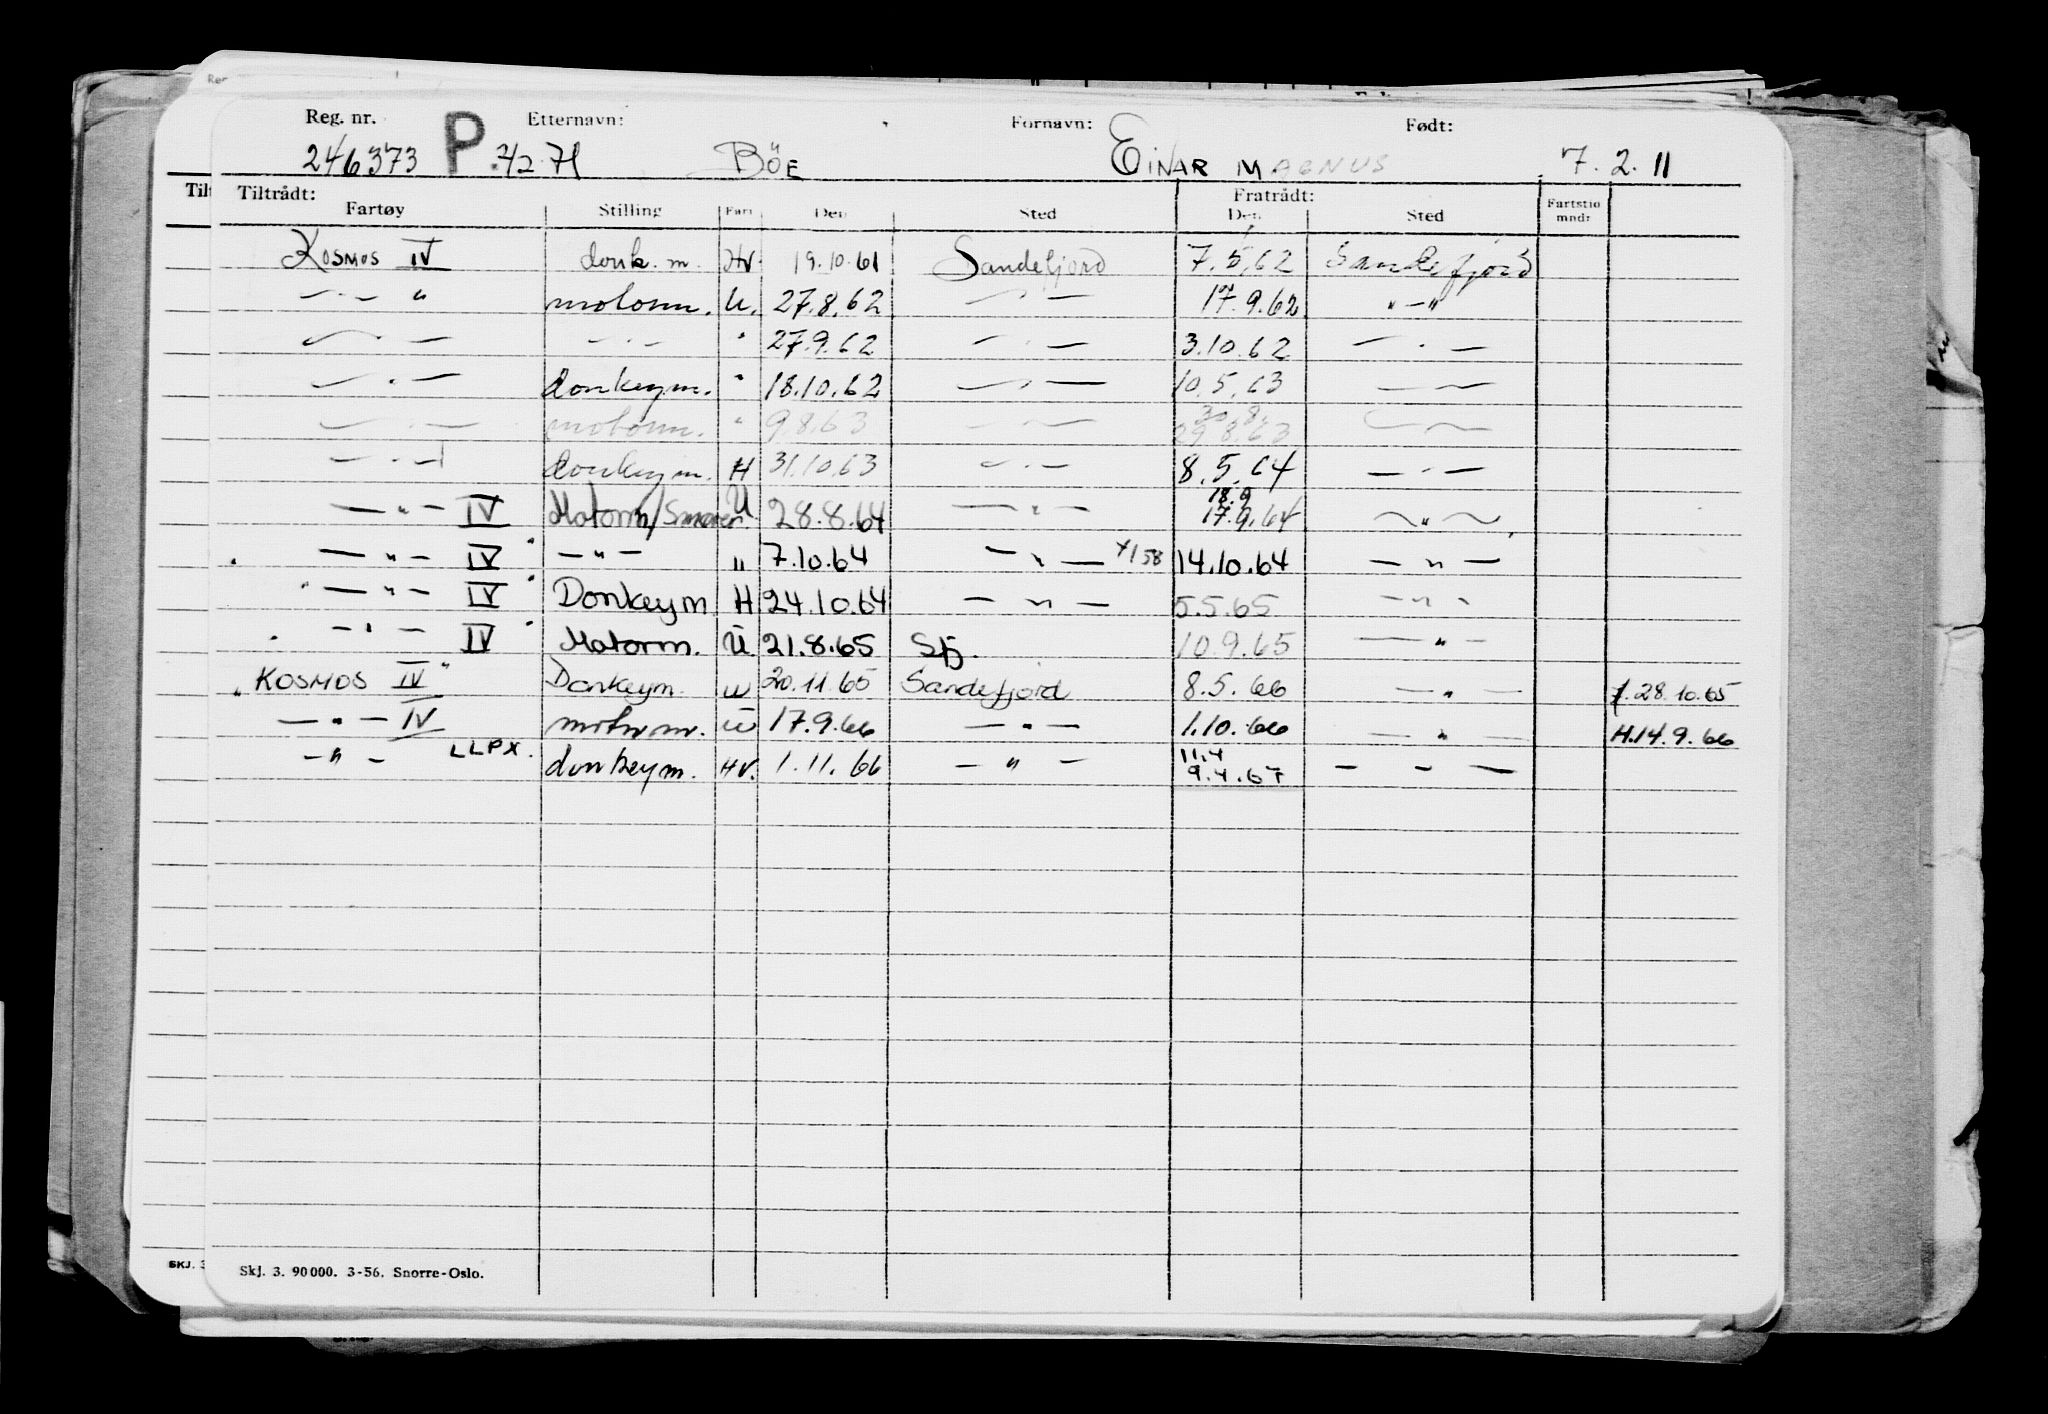 Reg. nr. Etternavn: Fornavn: Født:
246373 P 4/2 71 BÖE EINAR MAGNUS 7.2.11
Tiltrådt: Fratrådt:
Fartøy Stilling Fart Den Sted Den Sted Fartstid mndr
KOSMOS IV donk. m. HV. 19.10.61 Sandefjord 7.5.62 Sandefjord
— · — " motorm. U. 27.8.62 — · — 17.9.62 " — "
— · — — · — " 27.9.62 — · — 3.10.62 — · —
— · — donkeym. " 18.10.62 — · — 10.5.63 — —
— · — motorm. " 9.8.63 — · — 30.8. 29.8.63 — · —
— · — donkeym. H 31.10.63 — · — 8.5.64 — · —
— " — IV Motorm/Smører U 28.8.64 — " — 18.9 17.9.64 — " —
" — " — IV " — " — " 7.10.64 — " — 14.10.64 — " —
" — " — IV " Donkeym H 24.10.64 — " — 5.5.65 — " —
" — " — IV " Motorm. U 21.8.65 Sfj. 10.9.65 — " —
" KOSMOS IV " Donkeym. U 20.11.65 Sandefjord 8.5.66 — " — 28.10.65
— " — IV motorm. U 17.9.66 — " — 1.10.66 — " — H.14.9.66
— " — LLPX. donkeym. HV. 1.11.66 — " — 11.4 9.4.67 — — —
SKJ. 3
Skj. 3. 90000. 3-56. Snorre-Oslo.